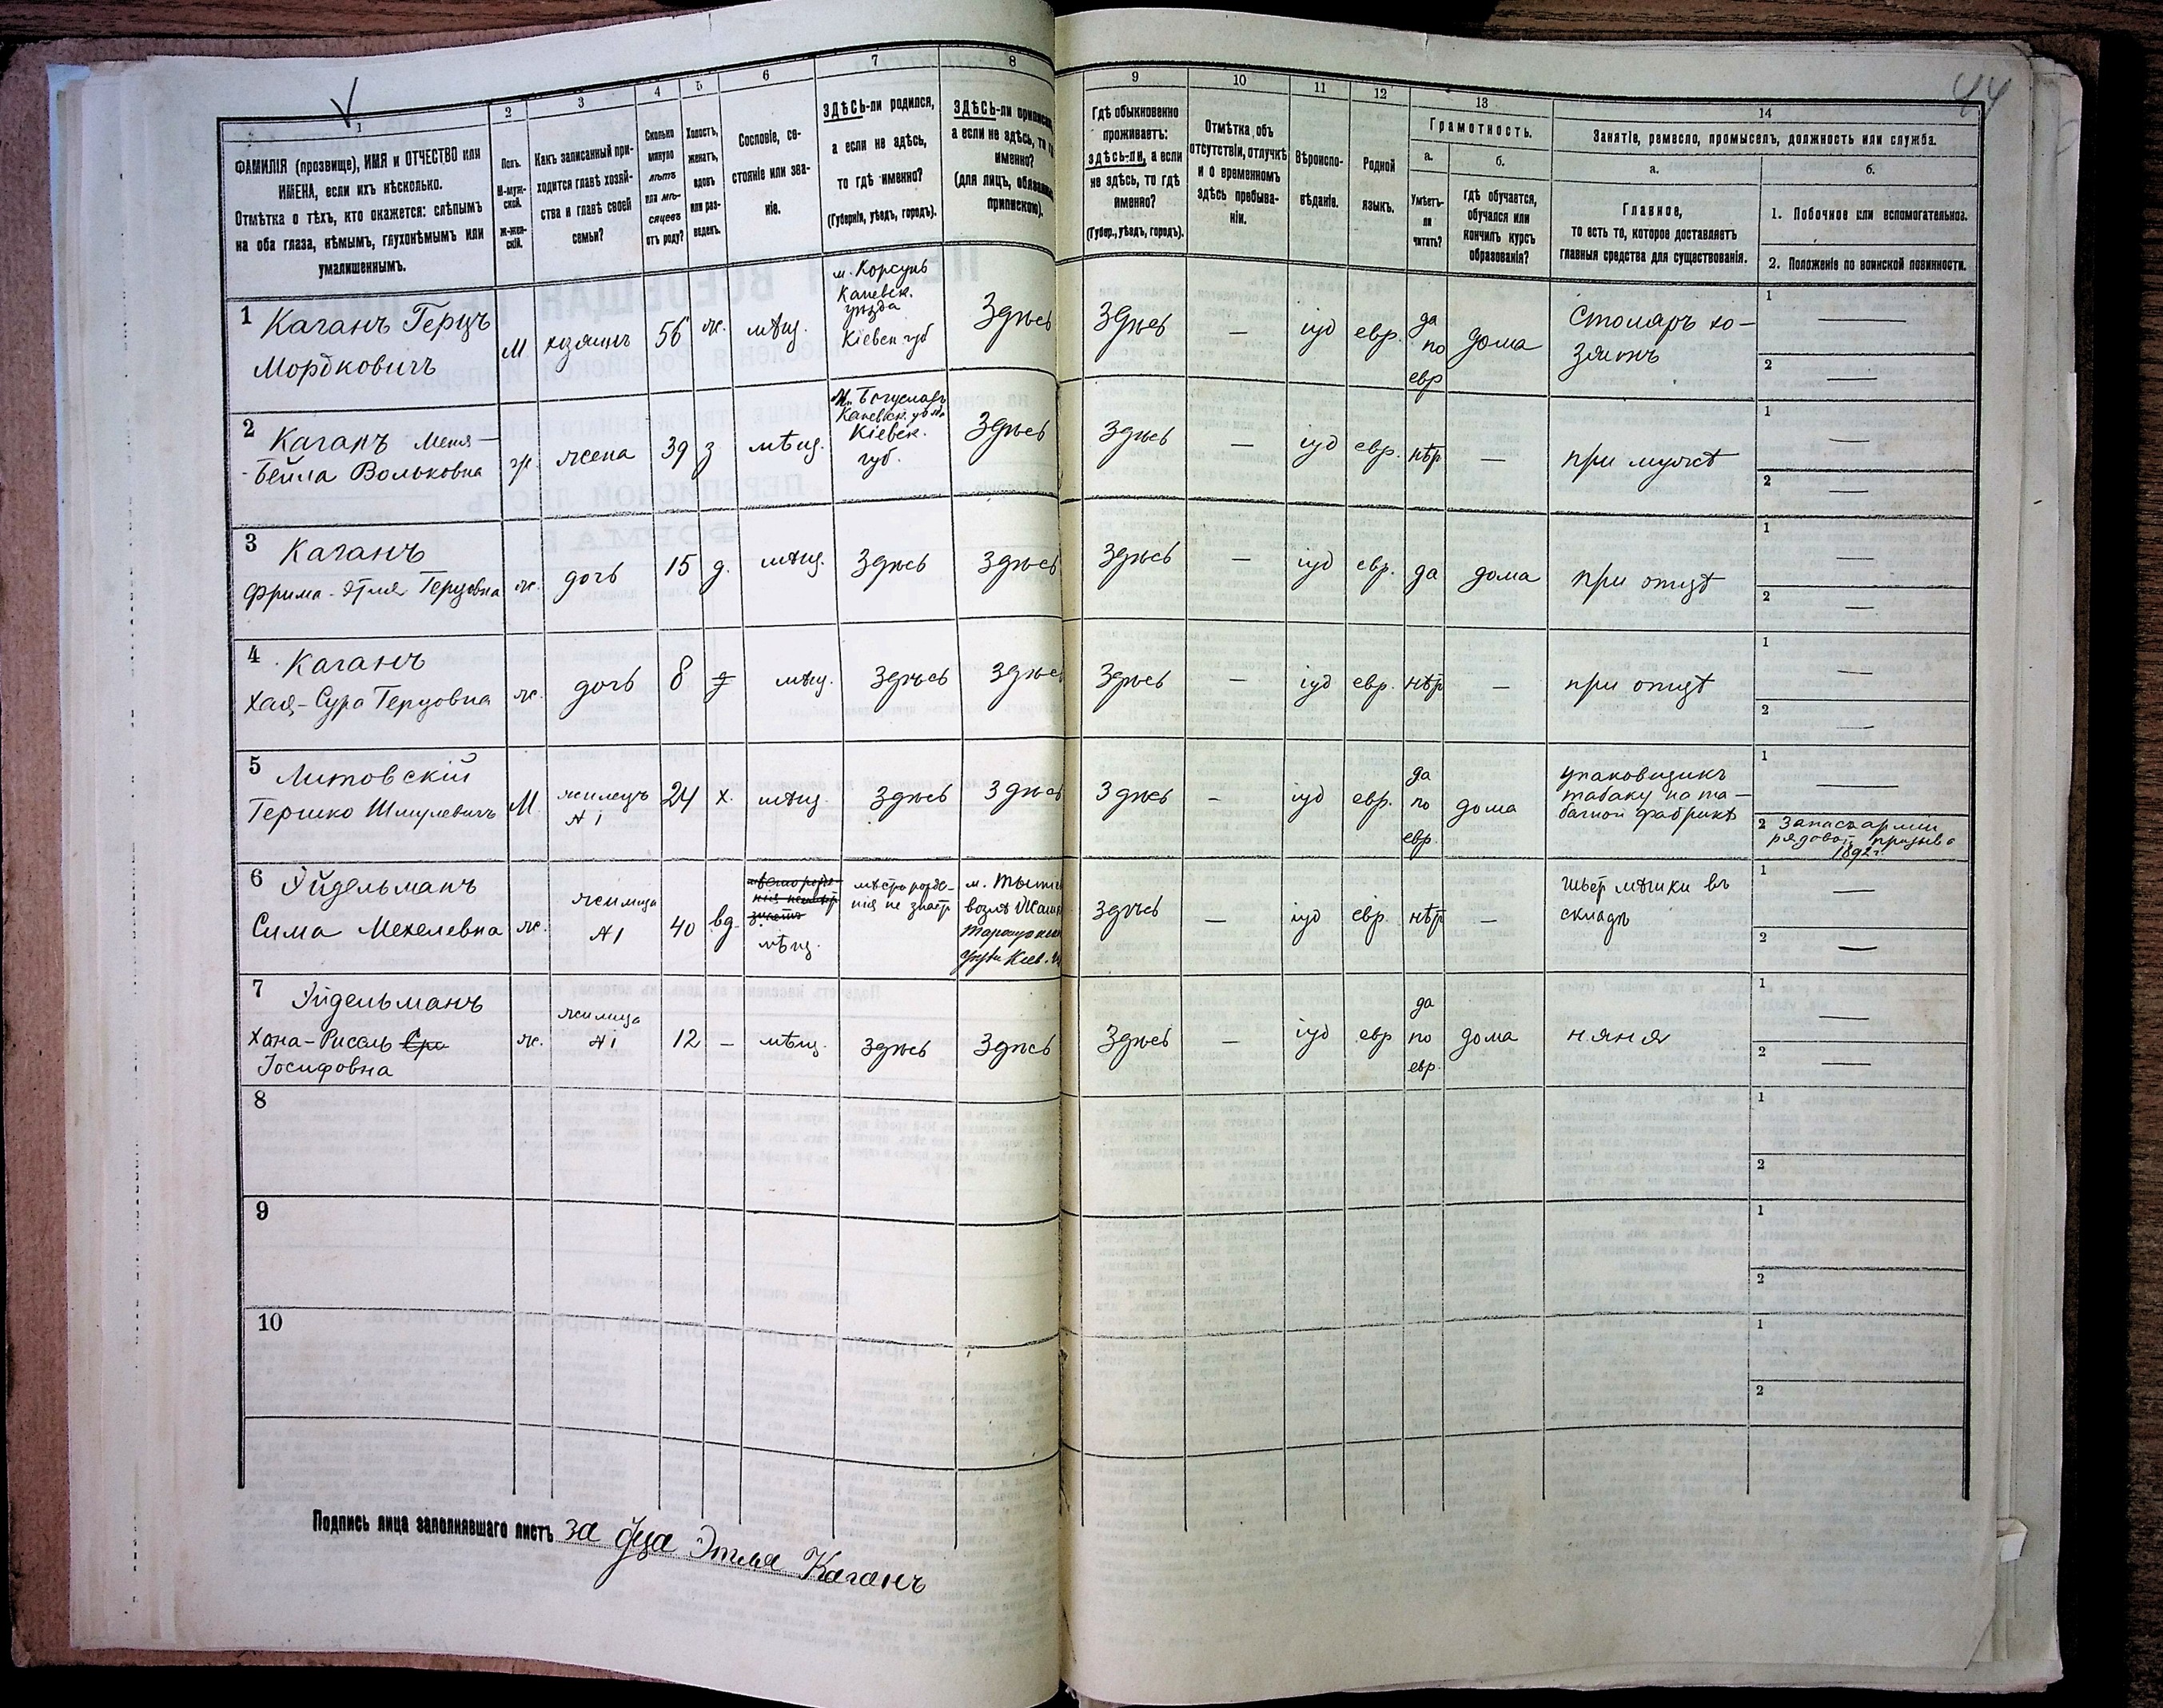 44
1
ФАМИЛІЯ (прозвище), ИМЯ и ОТЧЕСТВО или
ИМЕНА, если ихъ нѣсколько.
Отмѣтка о тѣхъ, кто окажется: слѣпымъ
на оба глаза, нѣмымъ, глухонѣмымъ или
умалишеннымъ.
2
Полъ.
М-муж-
ской.
Ж-жен-
скій.
3
Какъ записанный при-
ходится главѣ хозяй-
ства и главѣ своей
семьи?
4
Сколько
минуло
лѣтъ
или мѣ-
сяцевъ
отъ роду?
5
Холостъ,
женатъ,
вдовъ
или раз-
веденъ.
6
Сословіе, со-
стояніе или зва-
ніе.
7
ЗДѢСЬ-ли родился,
а если не здѣсь,
то гдѣ именно?
(Губернія, уѣздъ, городъ).
8
ЗДѢСЬ-ли
а если не здѣсь, то
именно?
(для лицъ,
припискою).
9
Гдѣ обыкновенно
проживаетъ:
здѣсь-ли, а если
не здѣсь, то гдѣ
именно?
(Губер., уѣздъ, городъ).
10
Отмѣтка объ
отсутствіи, отлучкѣ
и о временномъ
здѣсь пребыва-
ніи.
11
Вѣроиспо-
вѣданіе.
12
Родной
языкъ.
13
Грамотность.
а.
Умѣетъ-
ли
читать?
б.
Гдѣ обучается,
обучался или
кончилъ курсъ
образованія?
14
Занятіе, ремесло, промыселъ, должность или служба.
а.
Главное,
то есть то, которое доставляетъ
главныя средства для существованія.
б.
1. Побочное или вспомогательное.
2. Положеніе по воинской повинности.
1
Каганъ Герцъ
Мордковичъ
М
хозяинъ
56
ж.
мѣщ.
м. Корсунь
Каневск.
уѣзда
Кіевск. губ
Здѣсь
Здѣсь
—
іуд
евр.
да
по
евр
дома
Столяръ хо-
зяинъ
1 —
2 —
2
Каганъ Меня-
-Бейла Вольковна
ж.
жена
39
з
мѣщ.
М. Богуславъ
Каневск.
Кіевск.
губ.
Здѣсь
Здѣсь
—
іуд
евр.
нѣт
—
при мужѣ
1 —
2 —
3
Каганъ
Фрима-Этля Герцовна
ж.
дочь
15
д.
мѣщ.
Здѣсь
Здѣсь
Здѣсь
—
іуд
евр.
да
дома
при отцѣ
1 —
2 —
4
Каганъ
Хая-Сура Герцовна
ж.
дочь
8
д
мѣщ.
Здѣсь
Здѣсь
Здѣсь
—
іуд
евр.
нѣт
—
при отцѣ
1 —
2 —
5
Литовскій
Гершко Шмулевичъ
М.
жилецъ
№ 1
24
х.
мѣщ.
Здѣсь
Здѣсь
Здѣсь
—
іуд
евр.
да
по
евр.
дома
упаковщикъ
табаку на та-
бачной фабрикѣ
1 —
2 Запас. арміи
рядовой призыва
1892 г.
6
Эйдельманъ
Сима Мехелевна
ж.
жилица
№ 1
40
вд.
мѣщ.
мѣсто рожде-
нія не знаетъ
м.
возлѣ
Кіев.
Здѣсь
—
іуд
евр.
нѣт
—
Шьет мѣшки въ
складѣ
1 —
2 —
7
Эйдельманъ
Хана-Рисель
Іосифовна
ж.
жилица
№ 1
12
—
мѣщ.
Здѣсь
Здѣсь
Здѣсь
—
іуд
евр
да
по
евр.
дома
няня
1 —
2 —
8
1
2
9
1
2
10
1
2
Подпись лица заполнявшаго листъ за Отца Этля Каганъ